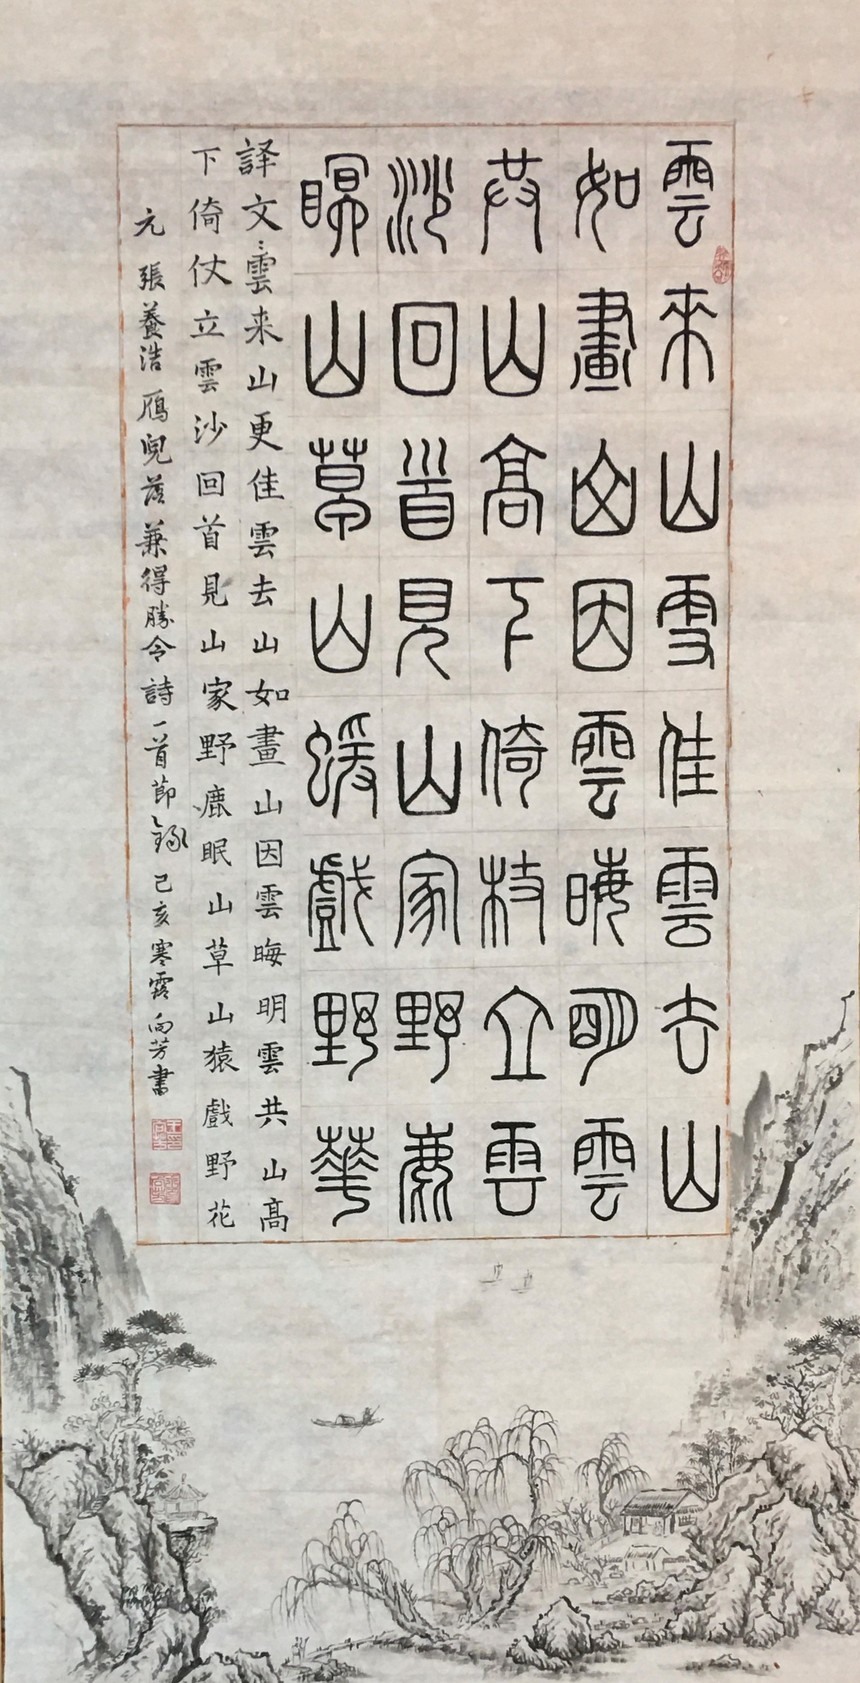 雲來山更佳雲去山
如畫山因雲晦明雲
共山高下倚杖立雲
沙回首見山家野鹿
眠山草山猿戲野華
譯文：雲来山更佳雲去山如畫山因雲晦明雲共山高
下倚仗立雲沙回首見山家野鹿眠山草山猿戲野花
元張養浩鴈兒落兼得勝令詩一首節錄己亥寒露向芳書